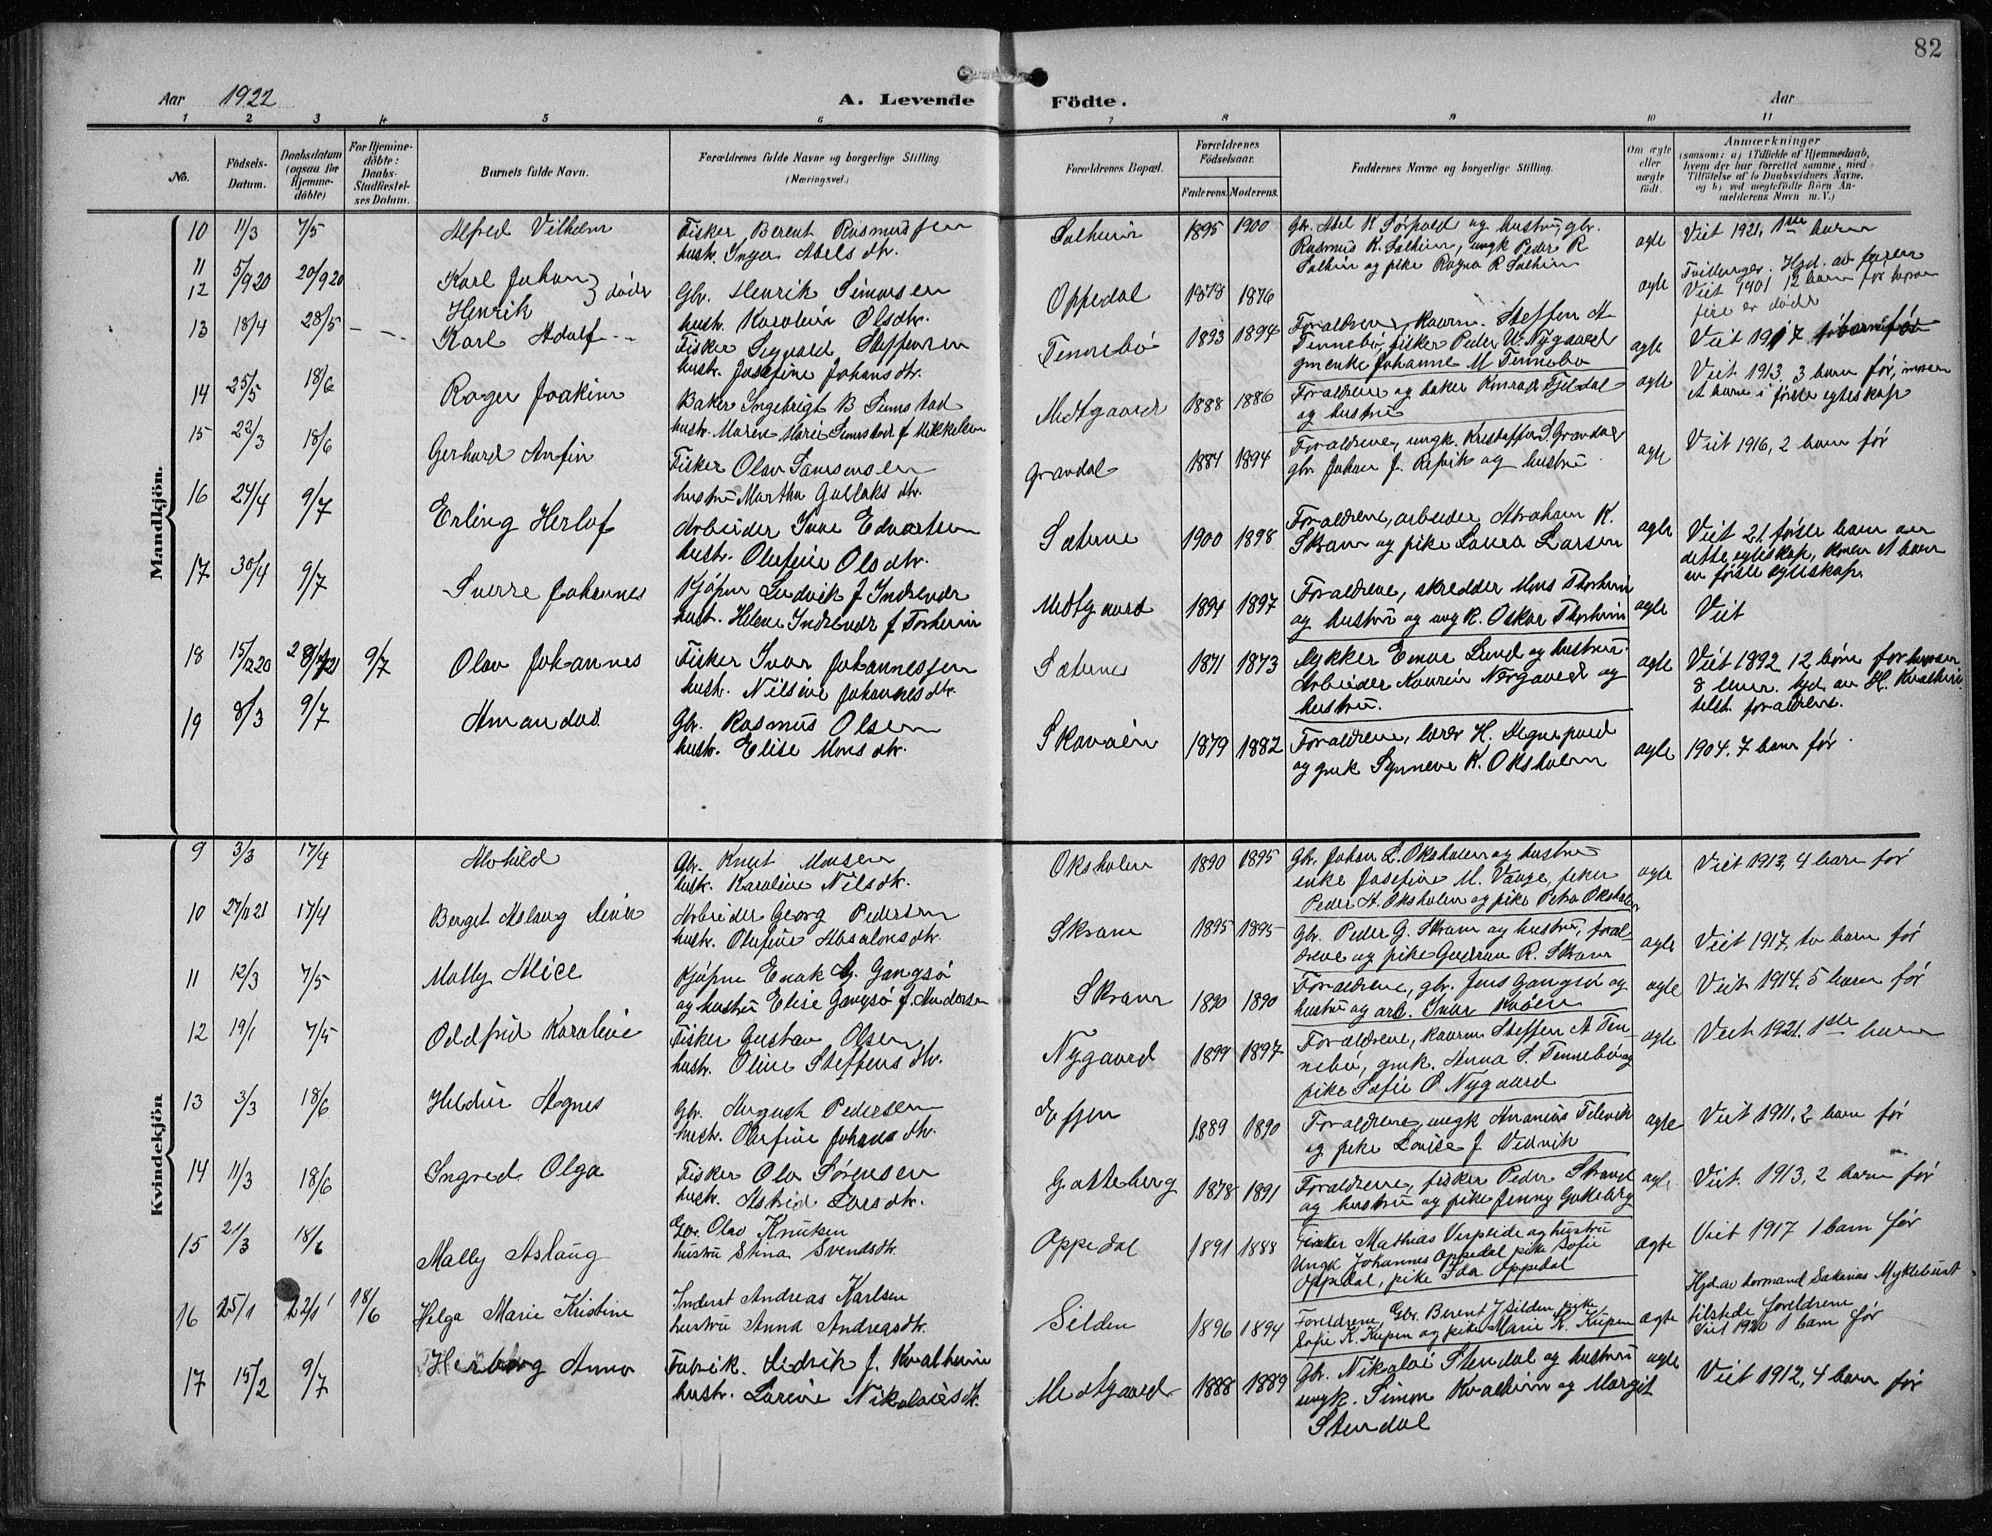 82
Aar 1922 A. Levende Födte. Aar
1 2 3 4 5 6 7 8 9 10 11
No. Födsels-Datum. Daabsdatum (ogsaa for Hjemmedöbte) For Hjemmedöbte: Daabs-Stadfæstelses Datum. Barnets fulde Navn. Forældrenes fulde Navne og borgerlige Stilling. (Næringsvei.) Forældrenes Bopæl. Forældrenes Födselsaar. Faderens. Moderens. Faddernes Navne og borgerlige Stilling. Om ægte eller uægte födt. Anmærkninger
(saasom: a) i Tilfælde af Hjemmedaab, hvem der har forrettet samme, med Tilföielse af to Daabsvidners Navne. og b) ved uægtefödte Börn Anmelderens Navn m. V.)
Mandkjön.
10 11/3 7/5 Alfred Vilhelm Fisker Berent Rasmussen
hustr. Inger Abels dtr. 1895 1900 Gbr. Abel K og hustru, gbr.
Rasmus K. ungk Peder R
og pike Ragna R ægte Viet 1921, 1ste barn
11 5/9 20 20/9 20 Karl Johan
12 Henrik } døde Gbr. Henrik Simonsen
hustr. Karoline Olsdtr. Oppedal 1878 1876 ægte Tvillinger. Hjd. av faren
Viet 1901 12 barn før hvorav
fire er døde
13 18/4 28/5 - - - Karl Adolf - - Fisker Sigvald Steffensen
hustr. Josefine Johansdtr. Tennebø 1893 1894 Forældrene, kaarm. Steffen A
Tennebø, fisker Peder A. Nygaard
gmenke Johanne M Tennebø ægte Viet 1917
14 25/5 18/6 Roger Joakim Baker Ingebrigt B
hustr. Maren Marie f. Mikkelsen Midtgaard 1888 1886 Forældrene og baker Konrad Fjeldal
og hustru ægte Viet 1913, 3 barn før, moren
et barn i første egteskap
15 22/3 18/6 Gerhard Anfin Fisker Olav
hustru Martha Gullaks dtr. Gravdal 1884 1894 Forældrene, ungk. Kristoffer S. Gravdal
gbr. Johan J. Refvik og hustru ægte Viet 1916, 2 barn før
16 24/4 9/7 Erling Herlof Arbeider Ivar Edvartsen
hustr. Olufine Olsdtr. Sæterne 1900 1898 Forældrene, arbeider Abraham K.
Skram og pike Laura Larsen ægte Viet 21, første barn av
dette egteskap, konen et barn
av første egteskap.
17 30/4 9/7 Sverre Johannes Kjøpm Ludvik J
hustr. Helene f Torheim Midtgaard 1894 1897 Forældrene, skredder Mons Thorheim
og hustru og ung K. Oskar Thorheim ægte Viet
18 15/12 20 9/7 Olav Johannes Fisker Ivar Johannessen
hustr. Nilsine Johannesdtr. Sæterne 1871 1873 Lykker Lund og hustru.
Arbeider og
hustru. ægte Viet 1892 12 børn før hvorav
8 lever. Hjd. av H. Kvalheim
tilst. forældrene.
19 8/3 9/7 Amandus Gbr. Rasmus Olsen
hustr. Elise Mons dtr. Skavøien 1879 1882 Forældrene, lærer H. Degnepoll
og gmk Synneve K. Oksholm ægte 1904. 7 barn før
Kvindekjön
9 3/3 17/4 Alvhild Gbr. Knut Monsen
hustr. Karoline Nilsdtr. Oksholm 1890 1895 Gbr. Johan L. Oksholm og hustru
enke Josefine M. Vaage, fisker
Peder A. Oksholm og pike Petra Oksholm ægte Viet 1913, 4 barn før
10 27/11 21 17/4 Berget Aslaug Arbeider Georg Pedersen
hustr. Olufine Absalonsdtr. Skram 1895 1895 Gbr. Peder G. Skram og hustru, foræl-
drene og pike Gudrun R. Skram ægte Viet 1917, to barn før
11 12/3 7/5 Molly Alice Kjøpm Enok G. Gangsø
og hustru Elise Gangsø f. Andersen Skram 1890 1890 Forældrene, gbr. Jens Gangsø og
hustru og arb. Ivar ægte Viet 1914, 5 barn før
12 19/1 7/5 Oddfrid Karoline Fisker Gustav Olsen,
hustr. Oline Steffens dtr. Nygaard 1899 1897 Forældrene, kaarm. Steffen A Ten-
nebø, gmk. Anna S. Tennebø og
pike Sofie O Nygaard ægte Viet 1921. 1ste barn
13 3/3 18/6 Hildur Agnes Gbr. August Pedersen
hustr. Olufine Johans dtr. 1889 1890 Forældrene, ungk Ananias
og pike Lovise J Vedvik ægte Viet 1911, 2 barn før
14 11/3 18/6 Ingred Olga Fisker Ola Sørensen
hustr. Astrid Larsdtr. Gotteberg 1878 1891 Forældrene, fisker Peder Strand
og hustru og pike Jenny Goteberg ægte Viet 1913, 2 barn før
15 21/3 18/6 Mally Aslaug Gbr. Olav Knutsen
hustru Stina Svendsdtr. Oppedal 1891 1888 Fisker Mathias og hustru
Ungk Johannes Oppedal pike Sofie
Oppedal, pike Ida Oppedal ægte Viet 1917 1 barn før
16 25/1 22/1 18/6 Helga Marie Kristine Inderst Andreas Karlsen
hustru Anna Andreasdtr. Silden 1896 1894 Foreldrene, Gbr. Berent J Silden pike
Sofie K. Kupen og pike Marie K. Kupen ægte Hjd. av formand Sakarias Myklebust
tilstede foreldrene
Viet 1920 1 barn før
17 15/2 9/7 Herborg Anna Fabrik. Didrik J. Kvalheim
hustr. Lorine Nikolaisdtr. Midtgaard 1888 1889 Gbr. Nikolai Stendal og hustru
ungk. Simon Kvalheim og Margit
Stendal ægte Viet 1912, 4 barn før